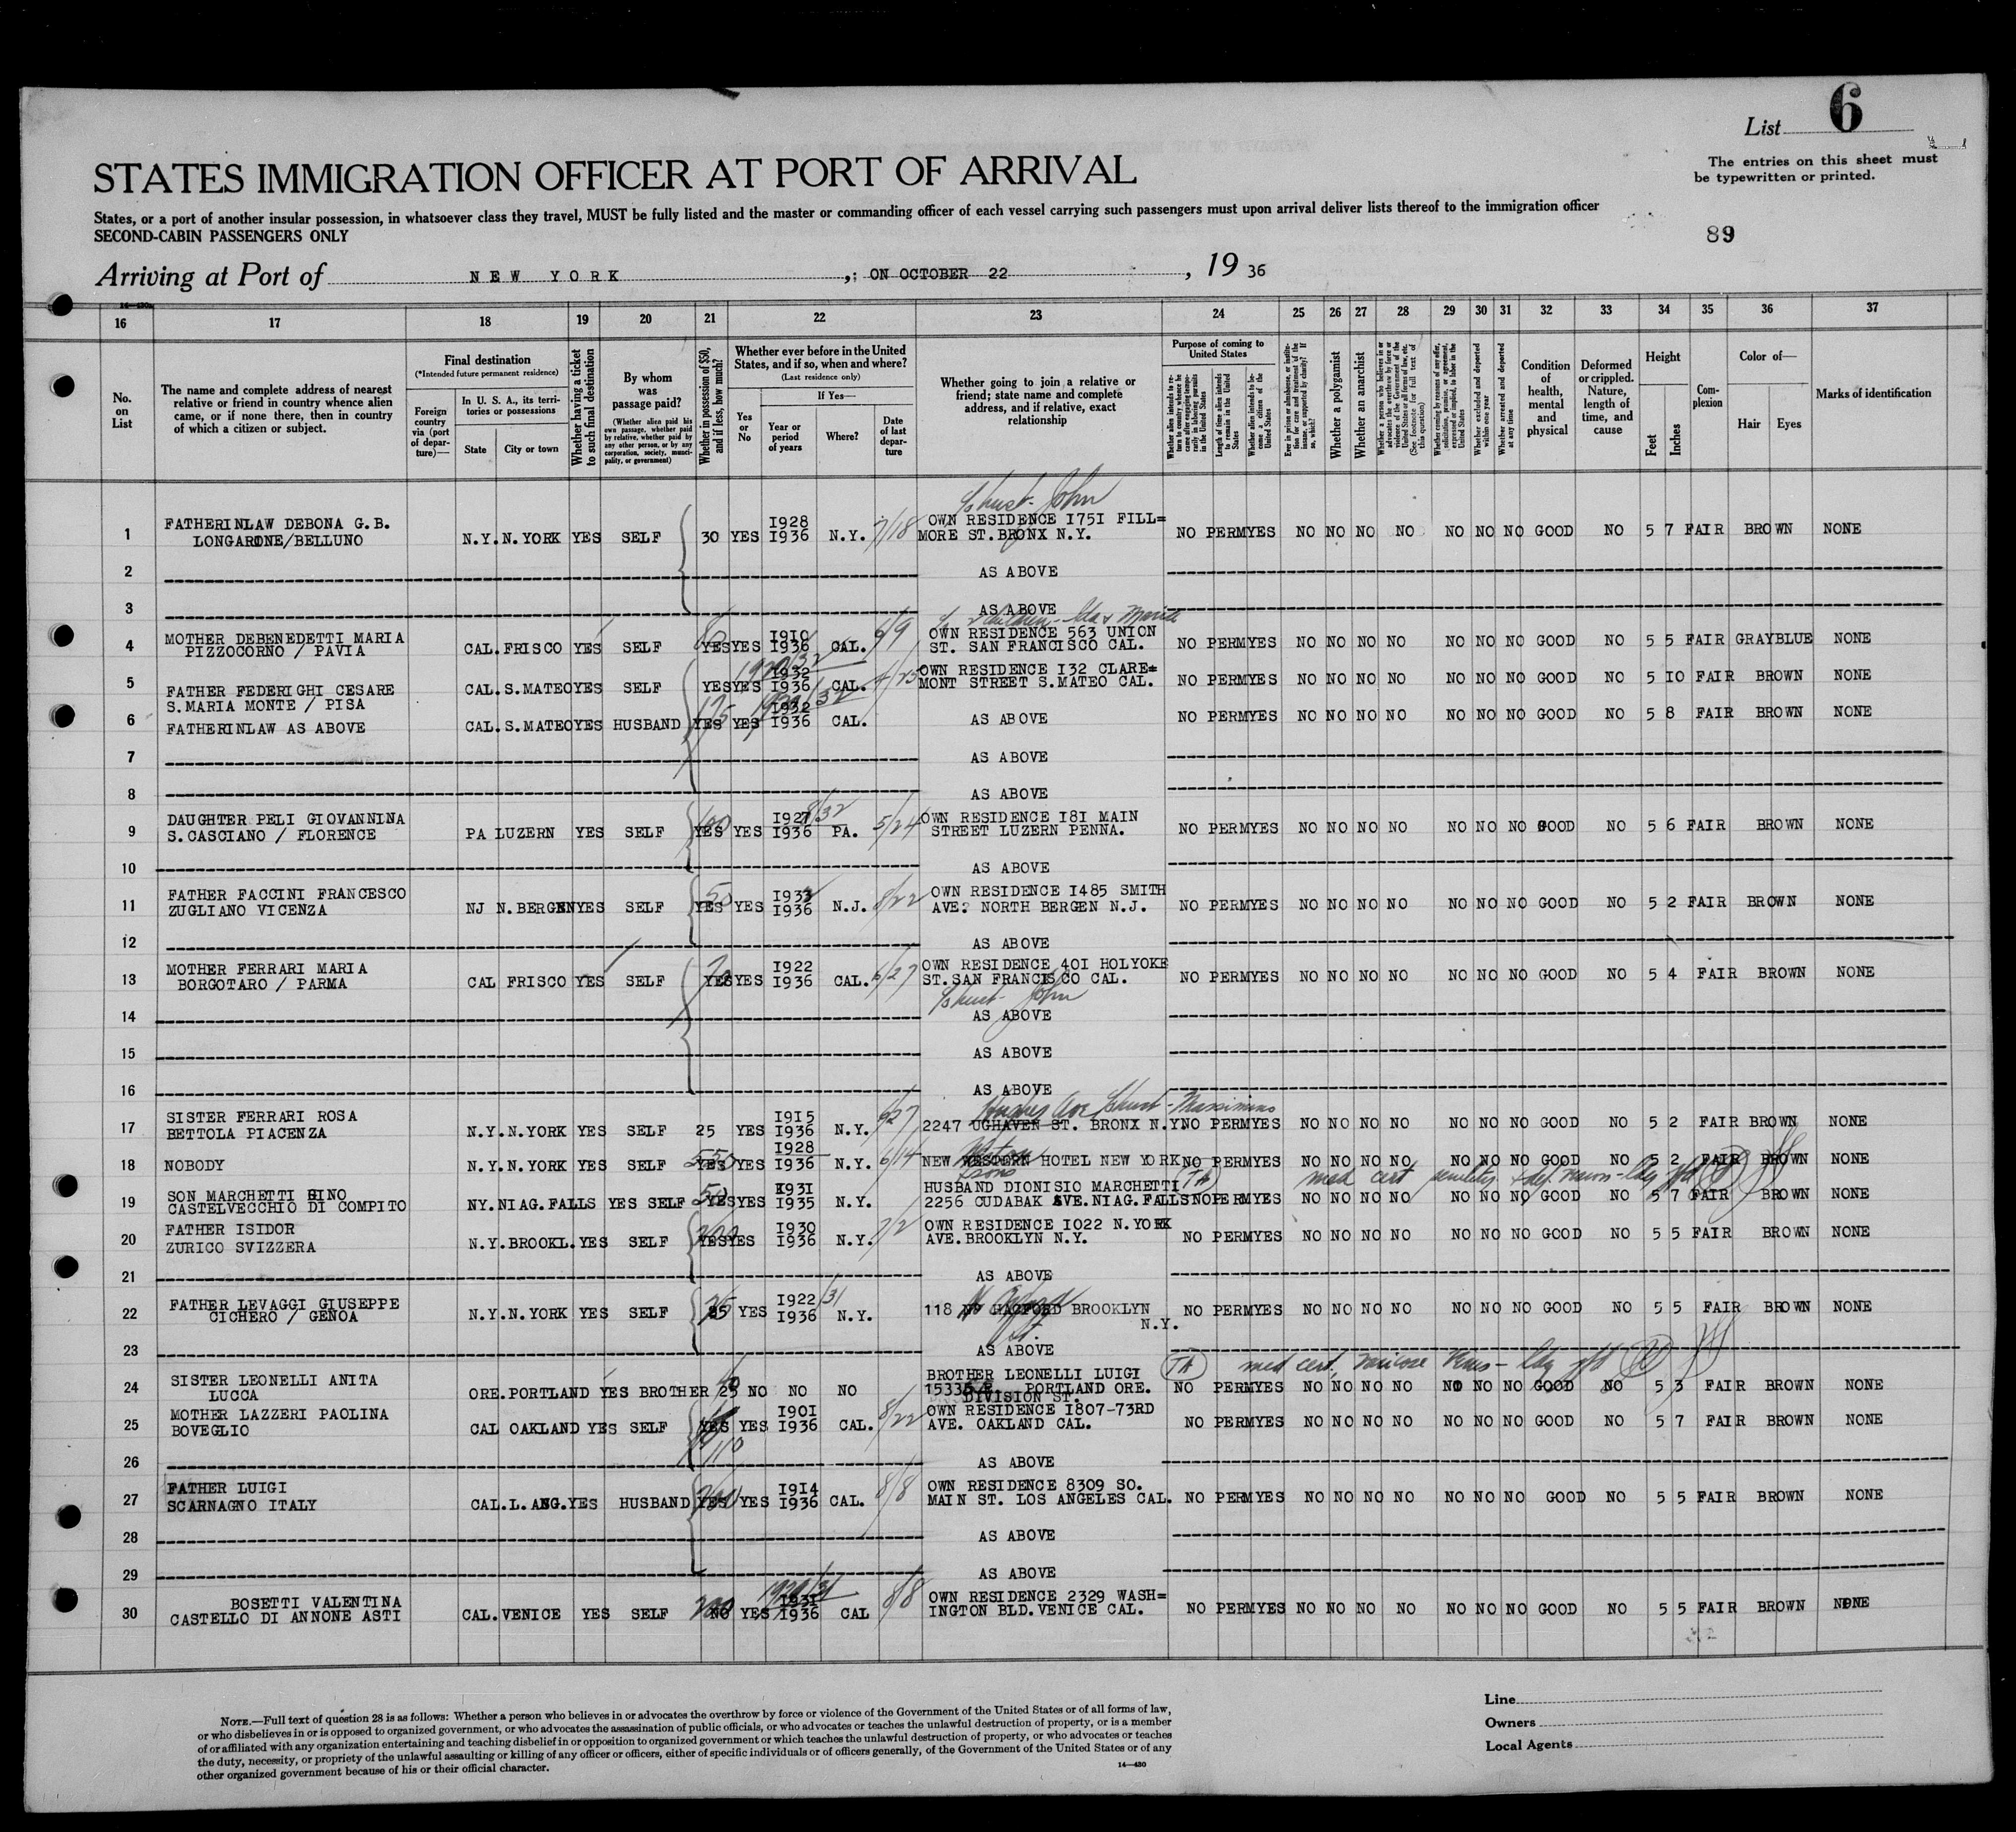 List 6
The entries on this sheet must
be typewritten or printed.
STATES IMMIGRATION OFFICER AT PORT OF ARRIVAL
States, or a port of another insular possession, in whatsoever class they travel, MUST be fully listed and the master or commanding officer of each vessel carrying such passengers must upon arrival deliver lists thereof to the immigration officer
SECOND-CABIN PASSENGERS ONLY
89
Arriving at Port of NEW YORK ,: ON OCTOBER 22 , 19 36
16 17 18 19 20 21 22 23 24 25 26 27 28 29 30 31 32 33 34 35 36 37
No. on List
The name and complete address of nearest
relative or friend in country whence alien
came, or if none there, then in country
of which a citizen or subject.
Final destination
(*Intended future permanent residence)
Foreign country via (port of departure)—
In U. S. A., its territories or possessions
State
City or town
Whether having a ticket to such final destination
By whom was passage paid?
(Whether alien paid his own passage, whether paid by relative, whether paid by any other person, or by any corporation, society, municipality, or government)
Whether in possession of $50, and if less, how much?
Whether ever before in the United
States, and if so, when and where?
(Last residence only)
Yes or No
If Yes—
Year or period of years
Where?
Date of last departure
Whether going to join a relative or
friend; state name and complete
address, and if relative, exact
relationship
Purpose of coming to United States
Whether alien intends to return to country whence he came after engaging temporarily in laboring pursuits in the United States
Length of time alien intends to remain in the United States
Whether alien intends to become a citizen of the United States
Ever in prison or almshouse, or institution for care and treatment of the insane, or supported by charity? If so, which?
Whether a polygamist
Whether an anarchist
Whether a person who believes in or advocates the overthrow by force or violence of the Government of the United States or all forms of law, etc. (See footnote for full text of this question)
Whether coming by reasons of any offer, solicitation, promise, or agreement, expressed or implied, to labor in the United States
Whether excluded and deported within one year
Whether arrested and deported at any time
Condition of health, mental and physical
Deformed or crippled. Nature, length of time, and cause
Height
Feet
Inches
Complexion
Color of—
Hair
Eyes
Marks of identification
John
1 FATHERINLAW DEBONA G.B. 1928 OWN RESIDENCE 1751 FILL=
LONGARONE/BELLUNO N.Y. N.YORK YES SELF 30 YES 1936 N.Y. 7/18 MORE ST.BRONX N.Y. NO PERM YES NO NO NO NO NO NO NO GOOD NO 5 7 FAIR BROWN NONE
2 AS ABOVE
3 AS ABOVE
4 MOTHER DEBENEDETTI MARIA 1910 6/9 OWN RESIDENCE 563 UNION
PIZZOCORNO / PAVIA CAL. FRISCO YES SELF YES YES 1936 CAL. ST. SAN FRANCISCO CAL. NO PERM YES NO NO NO NO NO NO NO GOOD NO 5 5 FAIR GRAY BLUE NONE
5 1932 4/25 OWN RESIDENCE 132 CLARE=
FATHER FEDERIGHI CESARE CAL. S.MATEO YES SELF YES YES 1936 CAL. MONT STREET S.MATEO CAL. NO PERM YES NO NO NO NO NO NO NO GOOD NO 5 10 FAIR BROWN NONE
S.MARIA MONTE / PISA
6 1932
FATHERINLAW AS ABOVE CAL. S.MATEO YES HUSBAND 175 YES YES 1936 CAL. AS ABOVE NO PERM YES NO NO NO NO NO NO NO GOOD NO 5 8 FAIR BROWN NONE
7 AS ABOVE
8 AS ABOVE
9 DAUGHTER PELI GIOVANNINA 1927 8/32 OWN RESIDENCE 181 MAIN
S.CASCIANO / FLORENCE PA LUZERN YES SELF YES YES 1936 PA. 5/24 STREET LUZERN PENNA. NO PERM YES NO NO NO NO NO NO NO GOOD NO 5 6 FAIR BROWN NONE
10 AS ABOVE
11 FATHER FACCINI FRANCESCO 50 1933 OWN RESIDENCE 1485 SMITH
ZUGLIANO VICENZA NJ N.BERGEN YES SELF YES YES 1936 N.J. 8/22 AVE. NORTH BERGEN N.J. NO PERM YES NO NO NO NO NO NO NO GOOD NO 5 2 FAIR BROWN NONE
12 AS ABOVE
13 MOTHER FERRARI MARIA 1922 OWN RESIDENCE 401 HOLYOKE
BORGOTARO / PARMA CAL FRISCO YES SELF YES YES 1936 CAL. 6/27 ST.SAN FRANCISCO CAL. NO PERM YES NO NO NO NO NO NO NO GOOD NO 5 4 FAIR BROWN NONE
John
14 AS ABOVE
15 AS ABOVE
16 AS ABOVE
Hughes Ave
17 SISTER FERRARI ROSA 1915
BETTOLA PIACENZA N.Y. N.YORK YES SELF 25 YES 1936 N.Y. 6/27 2247 UGHAVEN ST. BRONX N.Y. NO PERM YES NO NO NO NO NO NO NO GOOD NO 5 2 FAIR BROWN NONE
1928
18 NOBODY N.Y. N.YORK YES SELF YES YES 1936 N.Y. 6/14 NEW WESTERN HOTEL NEW YORK NO PERM YES NO NO NO NO NO NO NO GOOD NO 5 2 FAIR BROWN NONE
med cert senility
19 SON MARCHETTI GINO 50 1931 HUSBAND DIONISIO MARCHETTI
CASTELVECCHIO DI COMPITO NY. NIAG.FALLS YES SELF YES YES 1935 N.Y. 2256 CUDABAK AVE.NIAG.FALLS NO PERM YES NO NO NO NO NO NO NO GOOD NO 5 7 FAIR BROWN NONE
20 FATHER ISIDOR 1930 7/2 OWN RESIDENCE 1022 N.YORK
ZURICO SVIZZERA N.Y. BROOKL. YES SELF YES YES 1936 N.Y. AVE.BROOKLYN N.Y. NO PERM YES NO NO NO NO NO NO NO GOOD NO 5 5 FAIR BROWN NONE
21 AS ABOVE
22 FATHER LEVAGGI GIUSEPPE 1922 /31
CICHERO / GENOA N.Y. N.YORK YES SELF YES 1936 N.Y. 118 BROOKLYN N.Y. NO PERM YES NO NO NO NO NO NO NO GOOD NO 5 5 FAIR BROWN NONE
23 AS ABOVE
TA med cert. varicose veins
24 SISTER LEONELLI ANITA BROTHER LEONELLI LUIGI
LUCCA ORE. PORTLAND YES BROTHER 25 NO NO NO 1533 PORTLAND ORE. NO PERM YES NO NO NO NO NO NO NO GOOD NO 5 3 FAIR BROWN NONE
DIVISION ST.
25 MOTHER LAZZERI PAOLINA 1901 OWN RESIDENCE 1807-73RD
BOVEGLIO CAL OAKLAND YES SELF YES YES 1936 CAL. 8/22 AVE. OAKLAND CAL. NO PERM YES NO NO NO NO NO NO NO GOOD NO 5 7 FAIR BROWN NONE
26 AS ABOVE
27 FATHER LUIGI 1914 8/8 OWN RESIDENCE 8309 SO.
SCARNAGNO ITALY CAL. L. ANG. YES HUSBAND YES YES 1936 CAL. MAIN ST. LOS ANGELES CAL. NO PERM YES NO NO NO NO NO NO NO GOOD NO 5 5 FAIR BROWN NONE
28 AS ABOVE
29 AS ABOVE
30 BOSETTI VALENTINA 1931 8/8 OWN RESIDENCE 2329 WASH=
CASTELLO DI ANNONE ASTI CAL. VENICE YES SELF NO YES 1936 CAL INGTON BLD.VENICE CAL. NO PERM YES NO NO NO NO NO NO NO GOOD NO 5 5 FAIR BROWN NONE
NOTE.—Full text of question 28 is as follows: Whether a person who believes in or advocates the overthrow by force or violence of the Government of the United States or of all forms of law,
or who disbelieves in or is opposed to organized government, or who advocates the assassination of public officials, or who advocates or teaches the unlawful destruction of property, or is a member
of or affiliated with any organization entertaining and teaching disbelief in or opposition to organized government or which teaches the unlawful destruction of property, or who advocates or teaches
the duty, necessity, or propriety of the unlawful assaulting or killing of any officer or officers, either of specific individuals or of officers generally, of the Government of the United States or of any
other organized government because of his or their official character.
14—430
Line
Owners
Local Agents